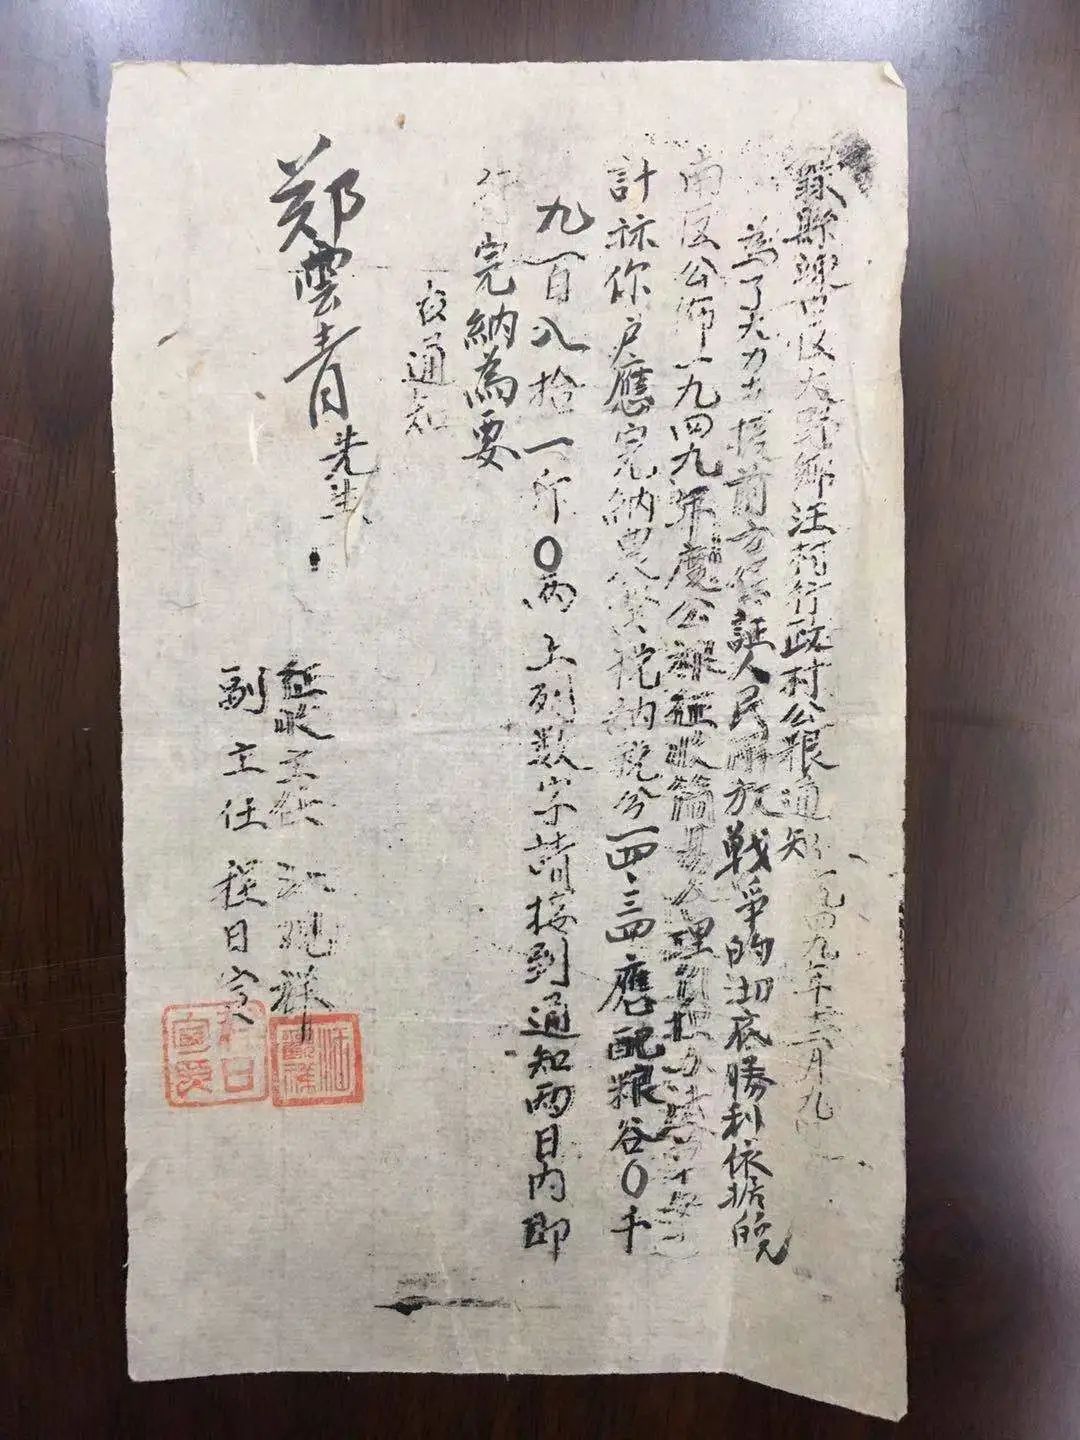 歙縣 區大 鄉汪村行政村公粮通知 一九四九年 月九
為了大力支援前方保証人民解放戰爭的沏底勝利依据皖
南区公佈一九四九年度公粮征收簡易 理負担办法
計祘你户應完納農 稅納稅分一四、三四應配粮谷0千
九百八拾一斤0両上列数字請接到通知両日内即
行完納為要
右通知
郑雲青先生
征收主任 汪 祥
副主任 程日